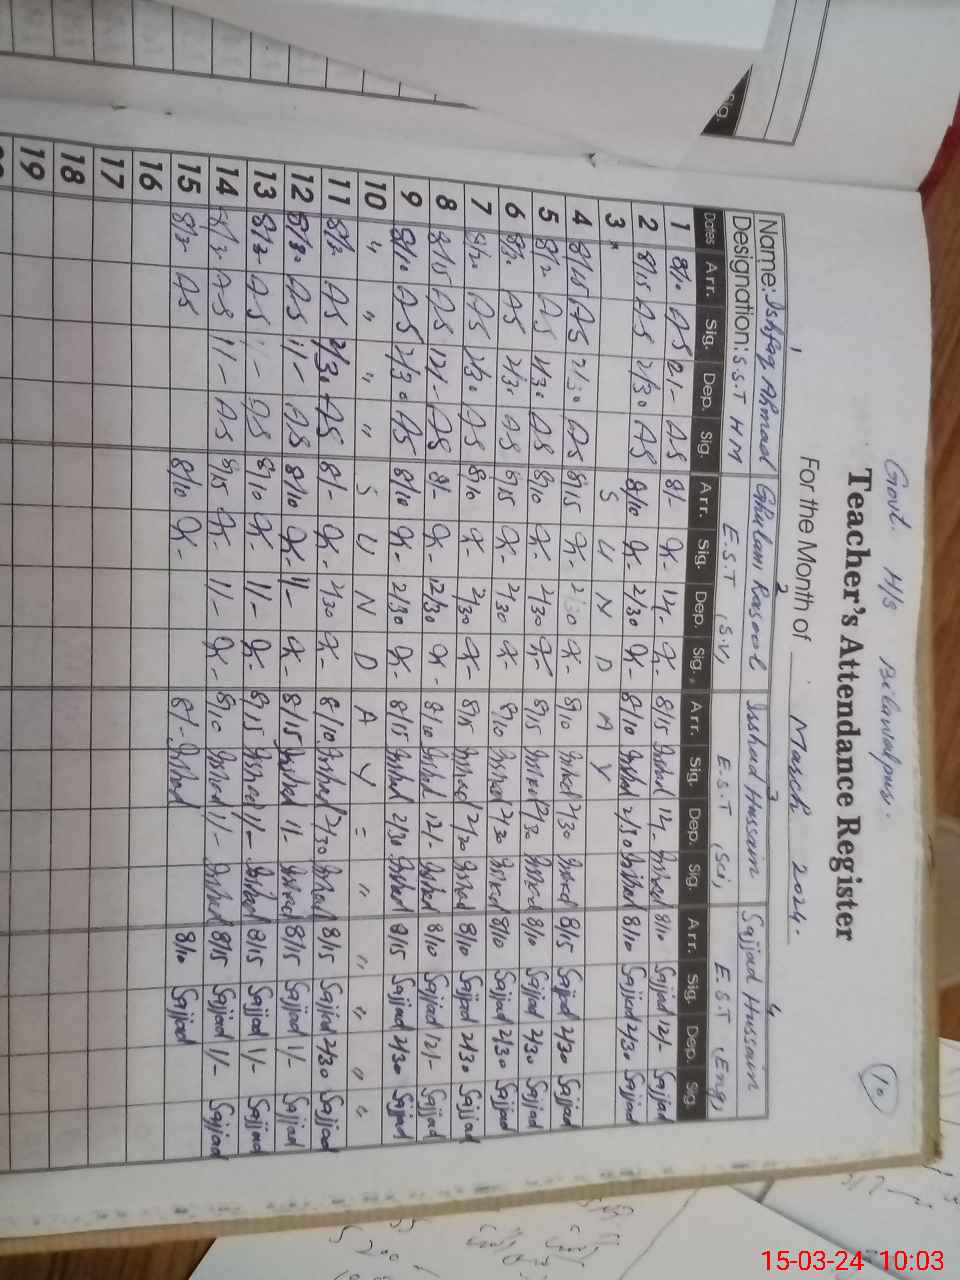 Govt. H/S Bilawalpur.
10
Teacher's Attendance Register
For the Month of March 2024.
1 2 3 4
Name: Ishfaq Ahmad Ghulam Rasool Irshad Hussain Sajjad Hussain
Designation: S.S.T HM E.S.T (S.V) E.S.T (Sci) E.S.T (Eng)
Dates Arr. Sig. Dep. Sig. Arr. Sig. Dep. Sig. Arr. Sig. Dep. Sig. Arr. Sig. Dep. Sig.
1 8/10 AS 12/- AS 8/- 12/- 8/15 Irshad 12/- Irshad 8/10 Sajjad 12/- Sajjad
2 8/15 AS 2/30 AS 8/10 2/30 8/10 Irshad 2/30 Irshad 8/10 Sajjad 2/30 Sajjad
3 S U N D A Y
4 8/15 AS 2/30 AS 8/15 2/30 8/10 Irshad 2/30 Irshad 8/15 Sajjad 2/30 Sajjad
5 AS 2/30 AS 8/10 2/30 8/15 Irshad 2/30 Irshad 8/10 Sajjad 2/30 Sajjad
6 AS 2/30 AS 8/15 2/30 8/10 Irshad 2/30 Irshad 8/10 Sajjad 2/30 Sajjad
7 AS 2/30 AS 8/10 2/30 8/15 Irshad 2/30 Irshad 8/10 Sajjad 2/30 Sajjad
8 8/15 AS 12/- AS 8/- 12/30 8/10 Irshad 12/- Irshad 8/10 Sajjad 12/- Sajjad
9 8/10 AS 2/30 AS 8/10 2/30 8/15 Irshad 2/30 Irshad 8/15 Sajjad 2/30 Sajjad
10 " " " " S U N D A Y = " " " " "
11 AS 2/30 AS 8/- 2/30 8/10 Irshad 2/30 Irshad 8/15 Sajjad 2/30 Sajjad
12 AS 11/- AS 8/10 11/- 8/15 Irshad 11/- Irshad 8/15 Sajjad 1/- Sajjad
13 AS 11/- AS 8/10 11/- 8/15 Irshad 11/- Irshad 8/15 Sajjad 1/- Sajjad
14 AS 11/- AS 8/15 11/- 8/10 Irshad 11/- Irshad 8/15 Sajjad 1/- Sajjad
15 AS 8/10 8/- Irshad 8/10 Sajjad
16
17
18
19
Sig.
15-03-24 10:03